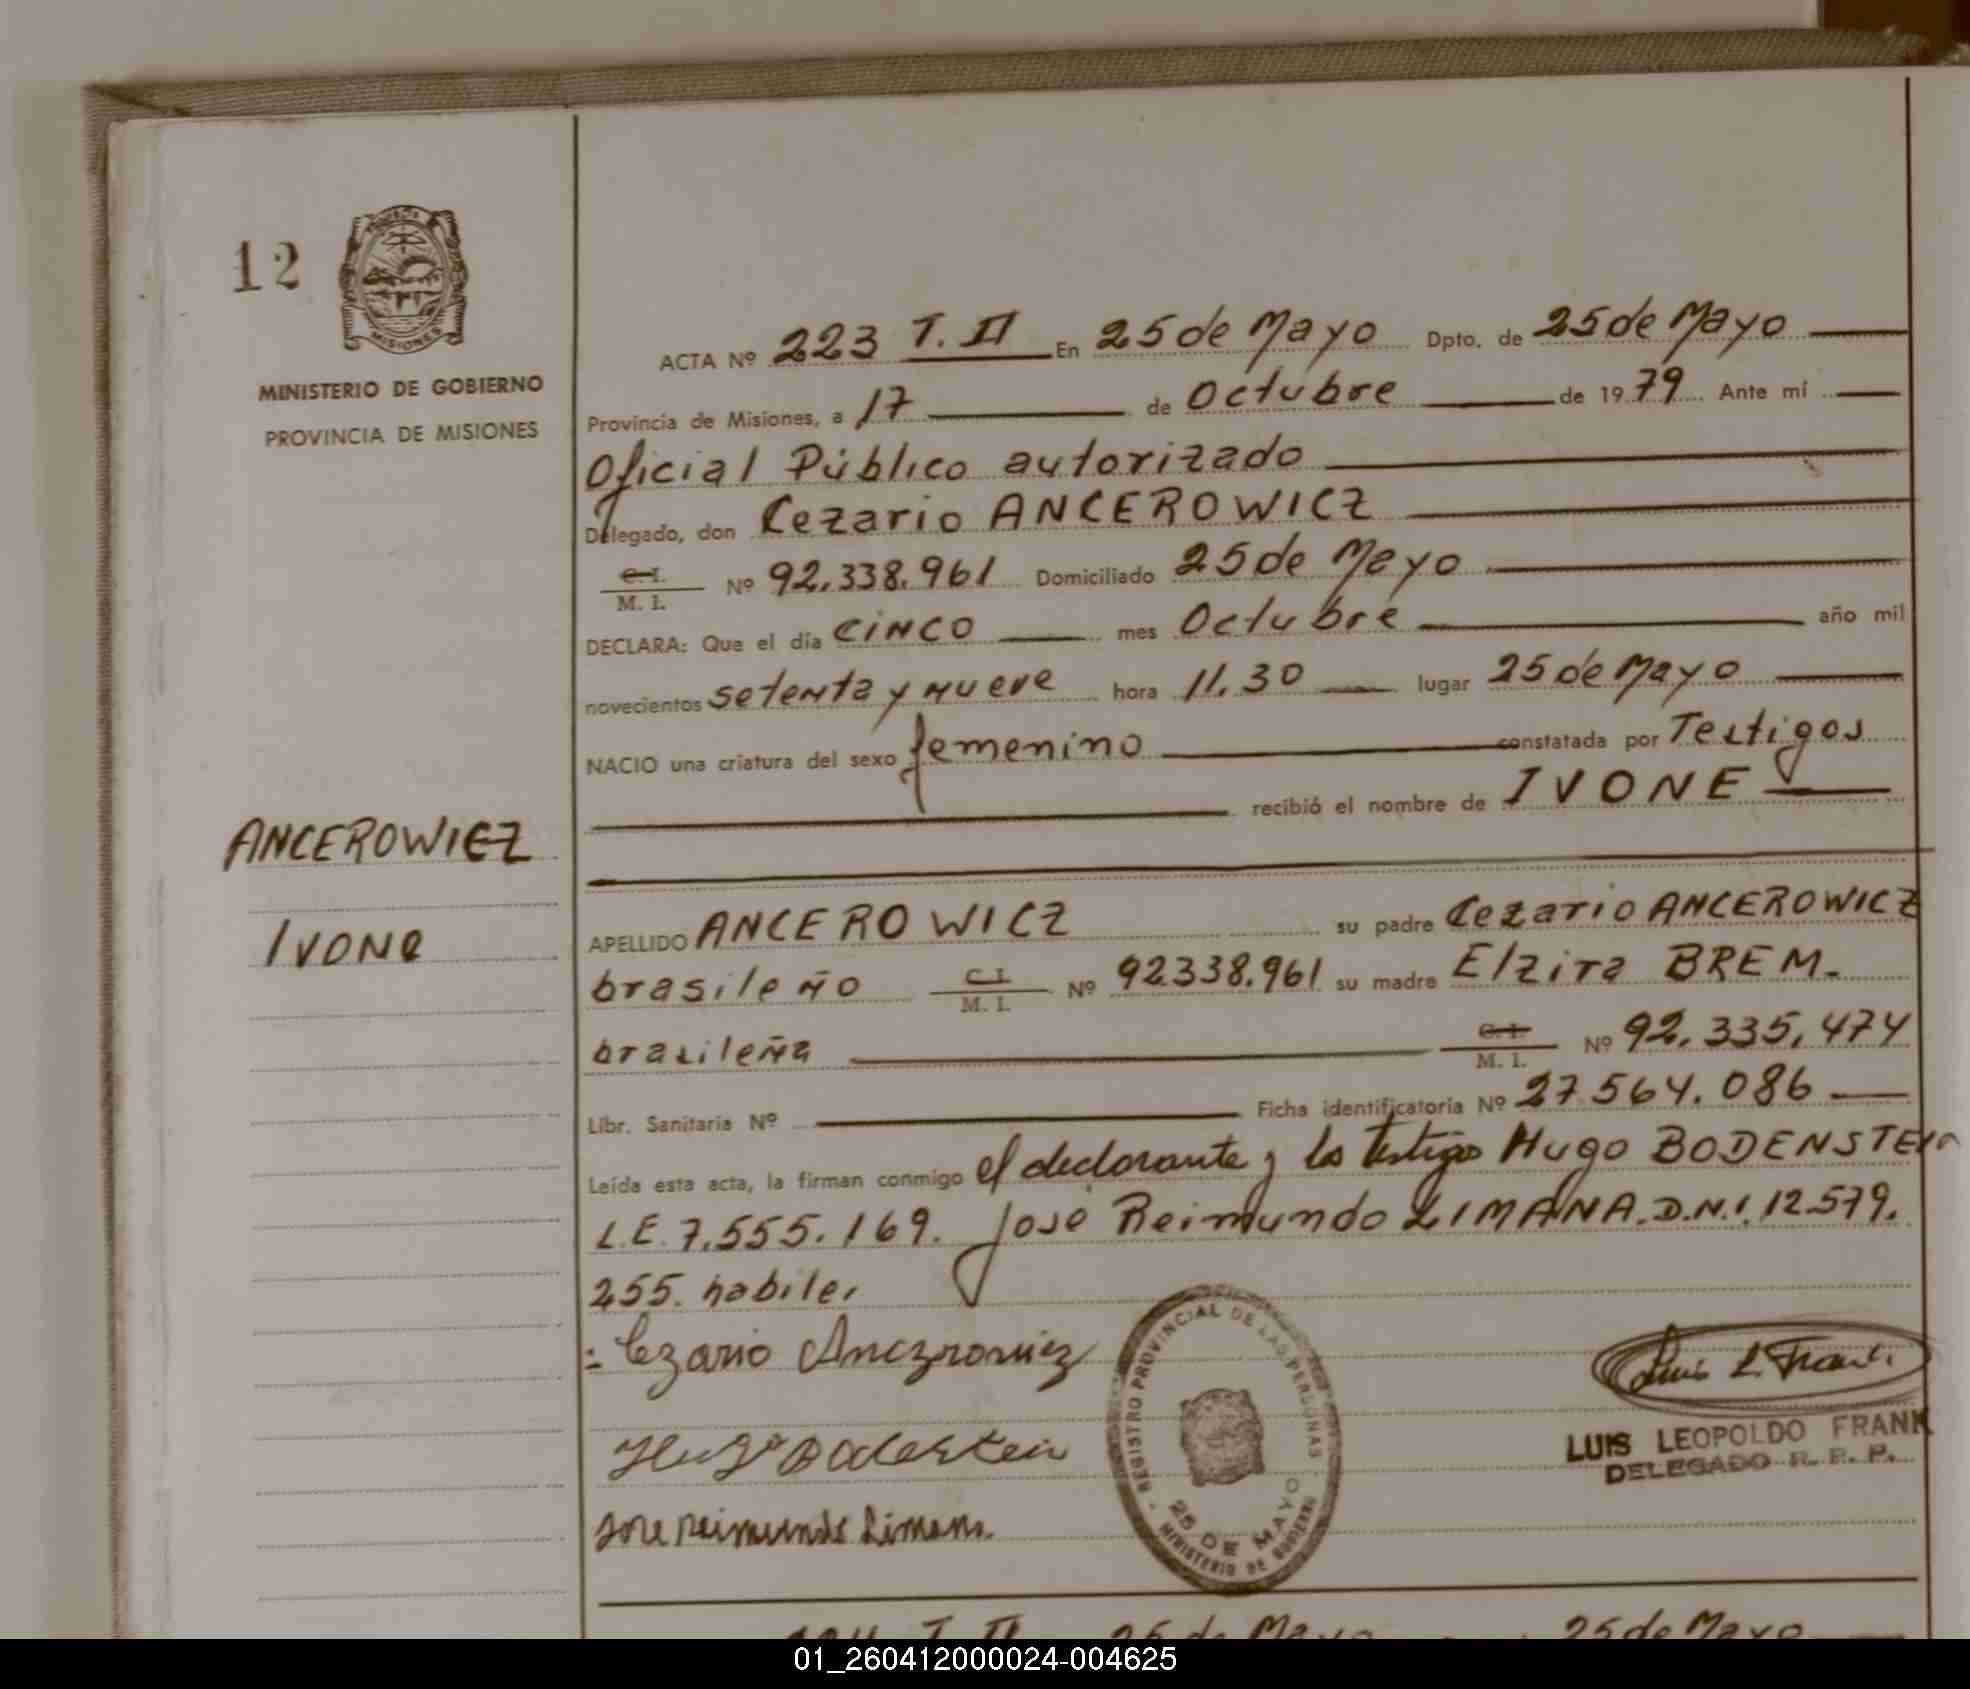 12
MISIONES
MINISTERIO DE GOBIERNO
PROVINCIA DE MISIONES
ANCEROWIEZ
IVONE
ACTA Nº 223 T. II En 25 de Mayo Dpto. de 25 de Mayo
Provincia de Misiones, a 17 de Octubre de 1979 Ante mí
Oficial Público autorizado
Delegado, don Cezario ANCEROWICZ
C. I. / M. I. Nº 92.338.961 Domiciliado 25 de Mayo
DECLARA: Que el día CINCO mes Octubre año mil
novecientos setenta y nueve hora 11.30 lugar 25 de Mayo
NACIO una criatura del sexo femenino constatada por Testigos
recibió el nombre de IVONE
APELLIDO ANCEROWICZ su padre Cezario ANCEROWICZ
brasileño C. I. / M. I. Nº 92.338.961 su madre Elzira BREM.
brasileña C. I. / M. I. Nº 92.335.474
Libr. Sanitaria Nº Ficha identificatoria Nº 27.564.086
Leída esta acta, la firman conmigo el declarante y los testigos Hugo BODENSTEIN
L.E. 7.555.169. José Reimundo LIMANA. D.N.I. 12.579.
255. habiles
Cezario Anczrowiez
Hugo Bodenstein
Jose Reimundo Limana.
REGISTRO PROVINCIAL DE LAS PERSONAS
25 DE MAYO
MINISTERIO DE GOBIERNO
Luis L. Frank
LUIS LEOPOLDO FRANK
DELEGADO R. P. P.
224 T. II 25 de Mayo 25 de Mayo
01_260412000024-004625